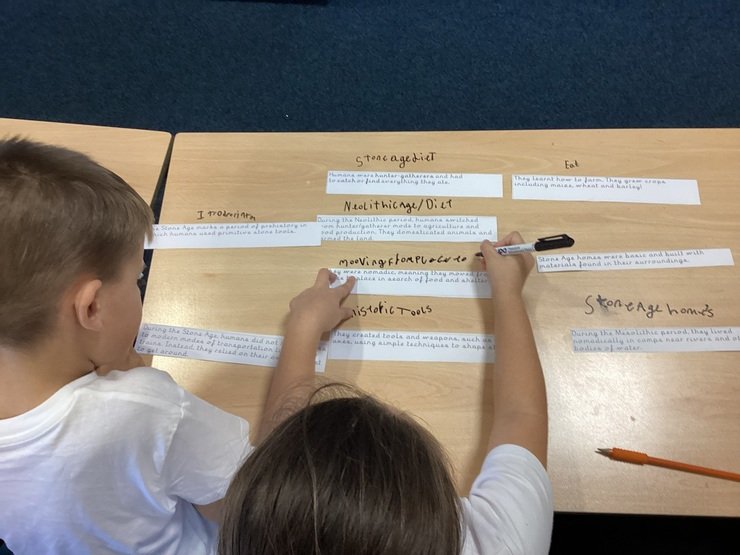 Stone age diet
Humans were hunter-gatherers and had
to catch or find everything they ate.
Eat
They learnt how to farm. They grew crops
including maize, wheat and barley!
Stone Age marks a period of prehistory in
humans used primitive stone tools.
Neolithic Age/Diet
During the Neolithic period, humans switched
hunter/gatherer mode to agriculture and
production. They domesticated animals and
the land.
mooving from place to
were nomadic, meaning they moved
place in search of food and shelter
Stone Age homes were basic and built with
materials found in their surroundings.
Tools
they created tools and weapons, such as
axes, using simple techniques to shape
During the Stone Age, humans did not
to modern modes of transportation
trains. Instead, they relied on their
to get around.
Stone Age homes
During the Mesolithic period, they lived
nomadically in camps near rivers and
bodies of water.